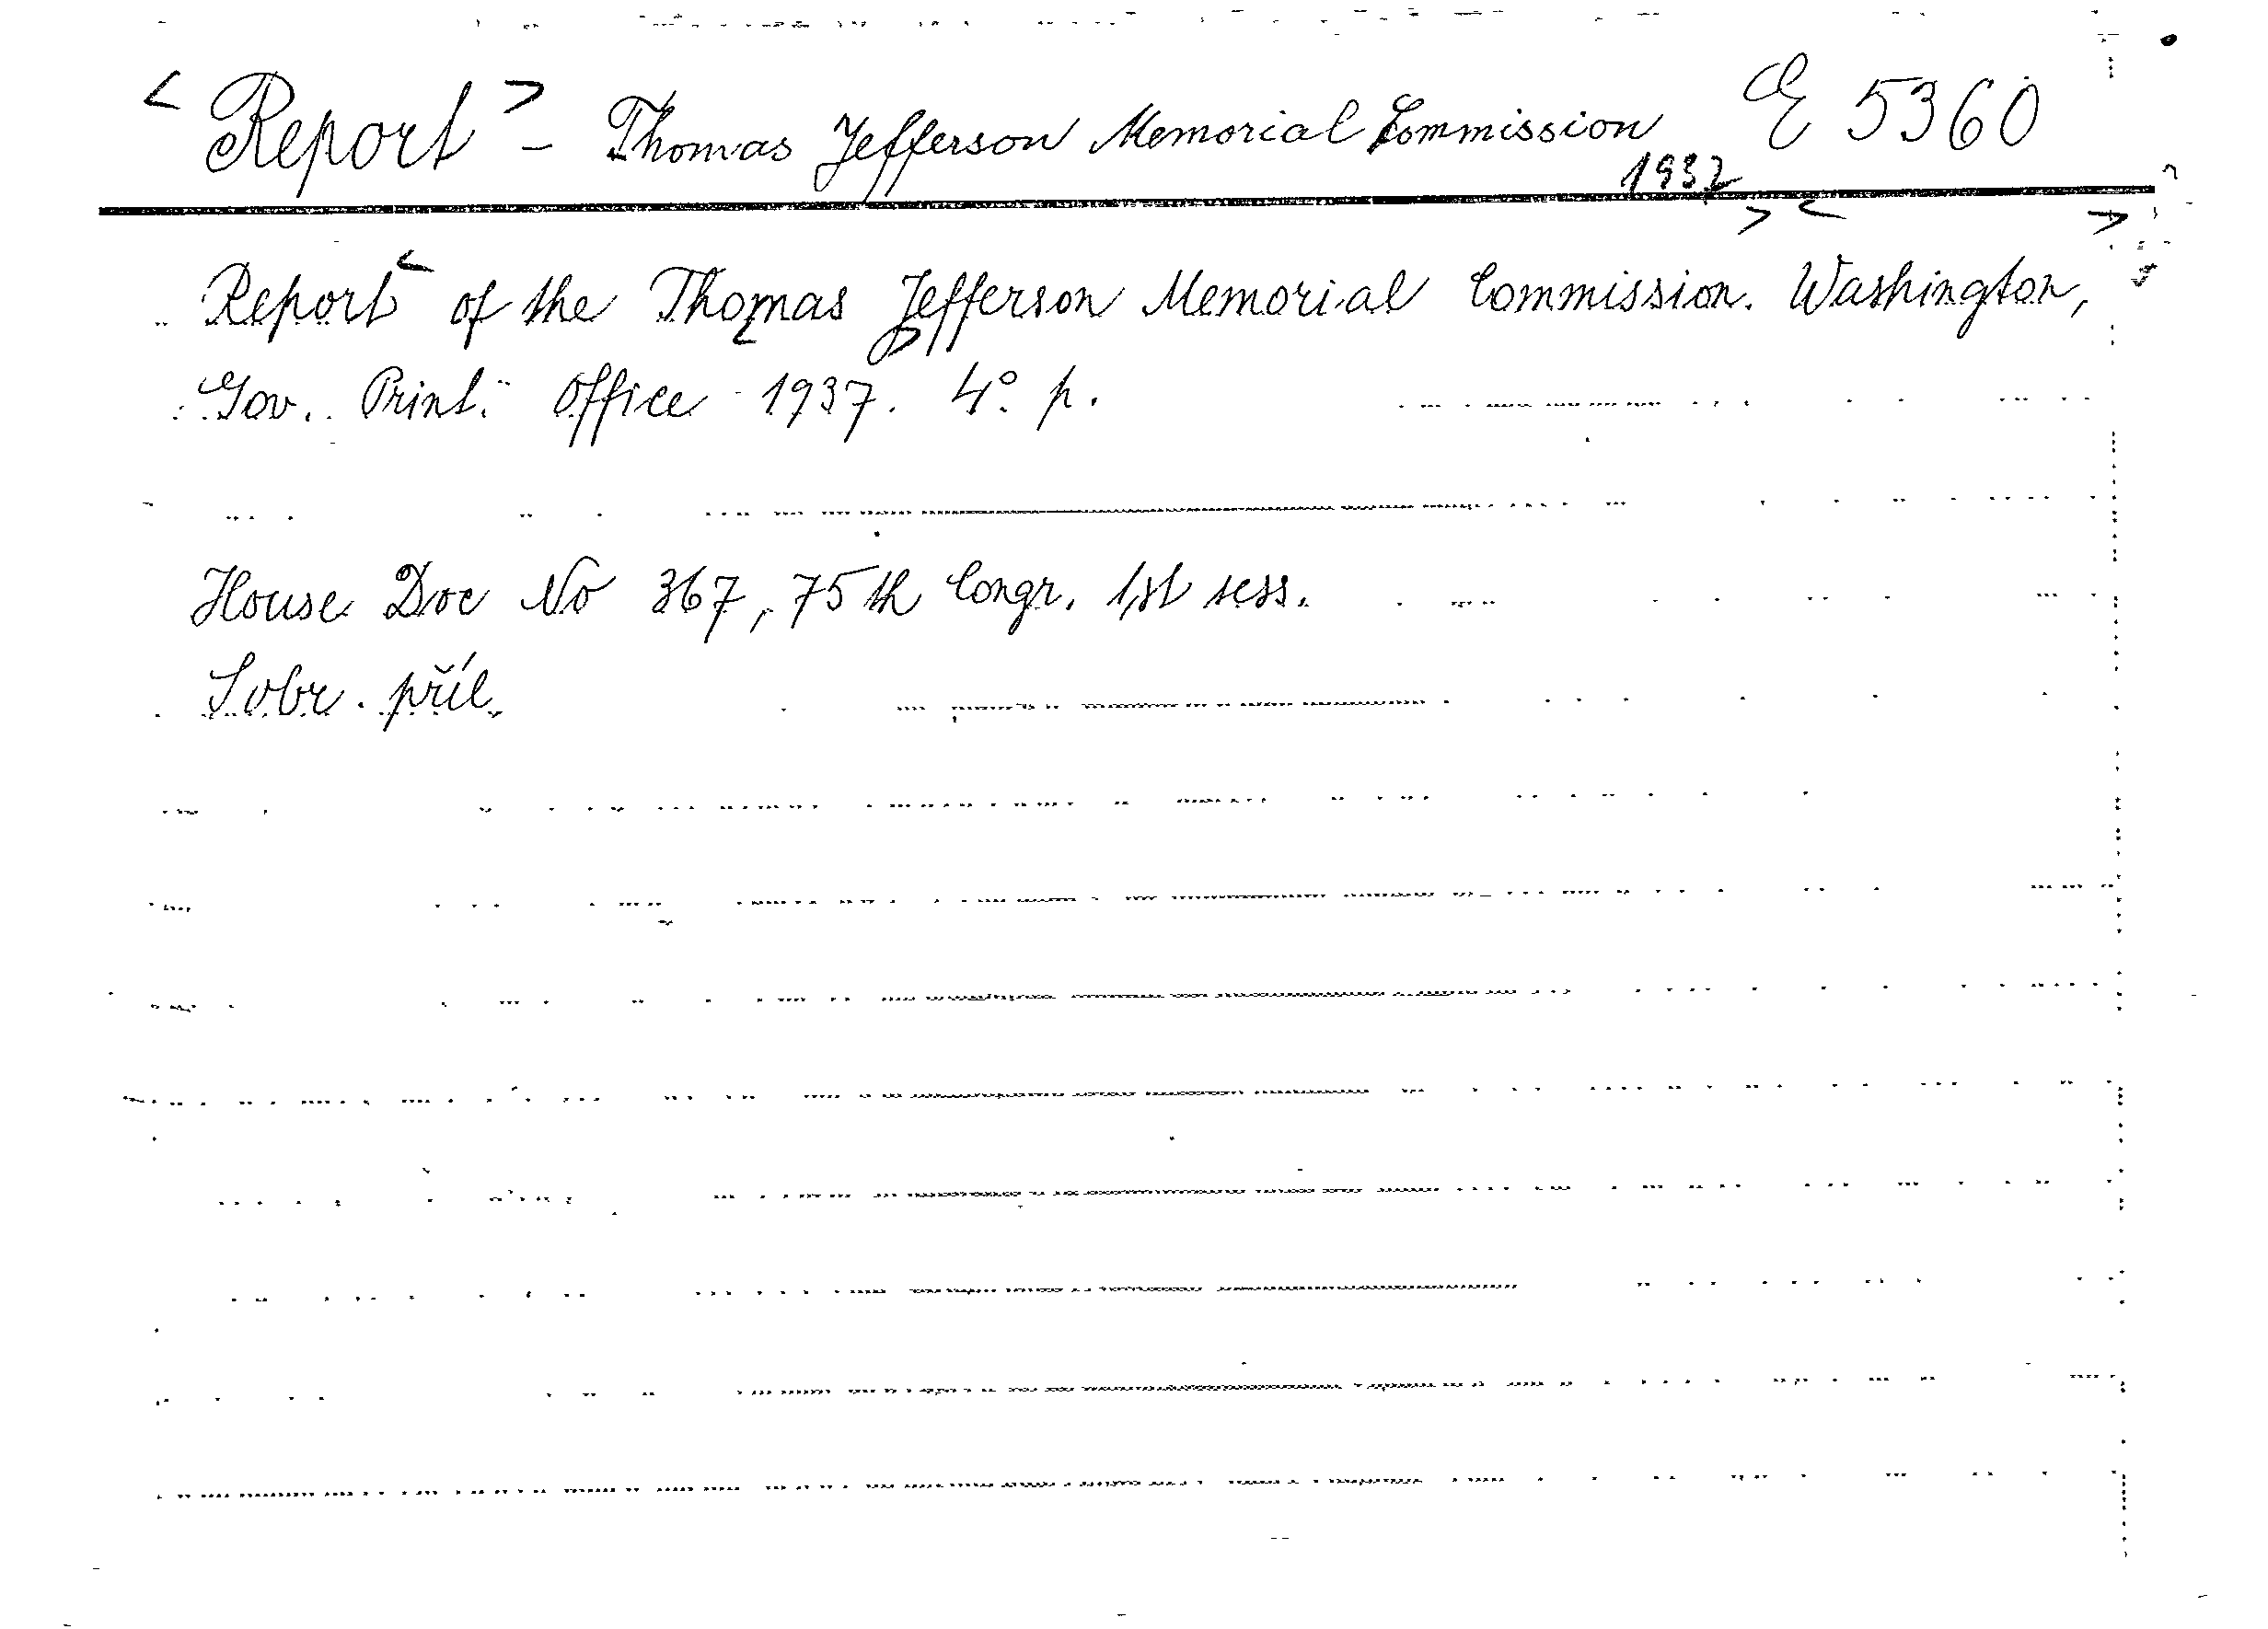 <Report> - Thomas Jefferson Memorial Commission E 5360
1937
Report of the Thomas Jefferson Memorial Commission. Washington,
Gov. Print. Office 1937. 4° p.
House Doc No 367, 75th Congr. 1st sess.
S obr. příl.